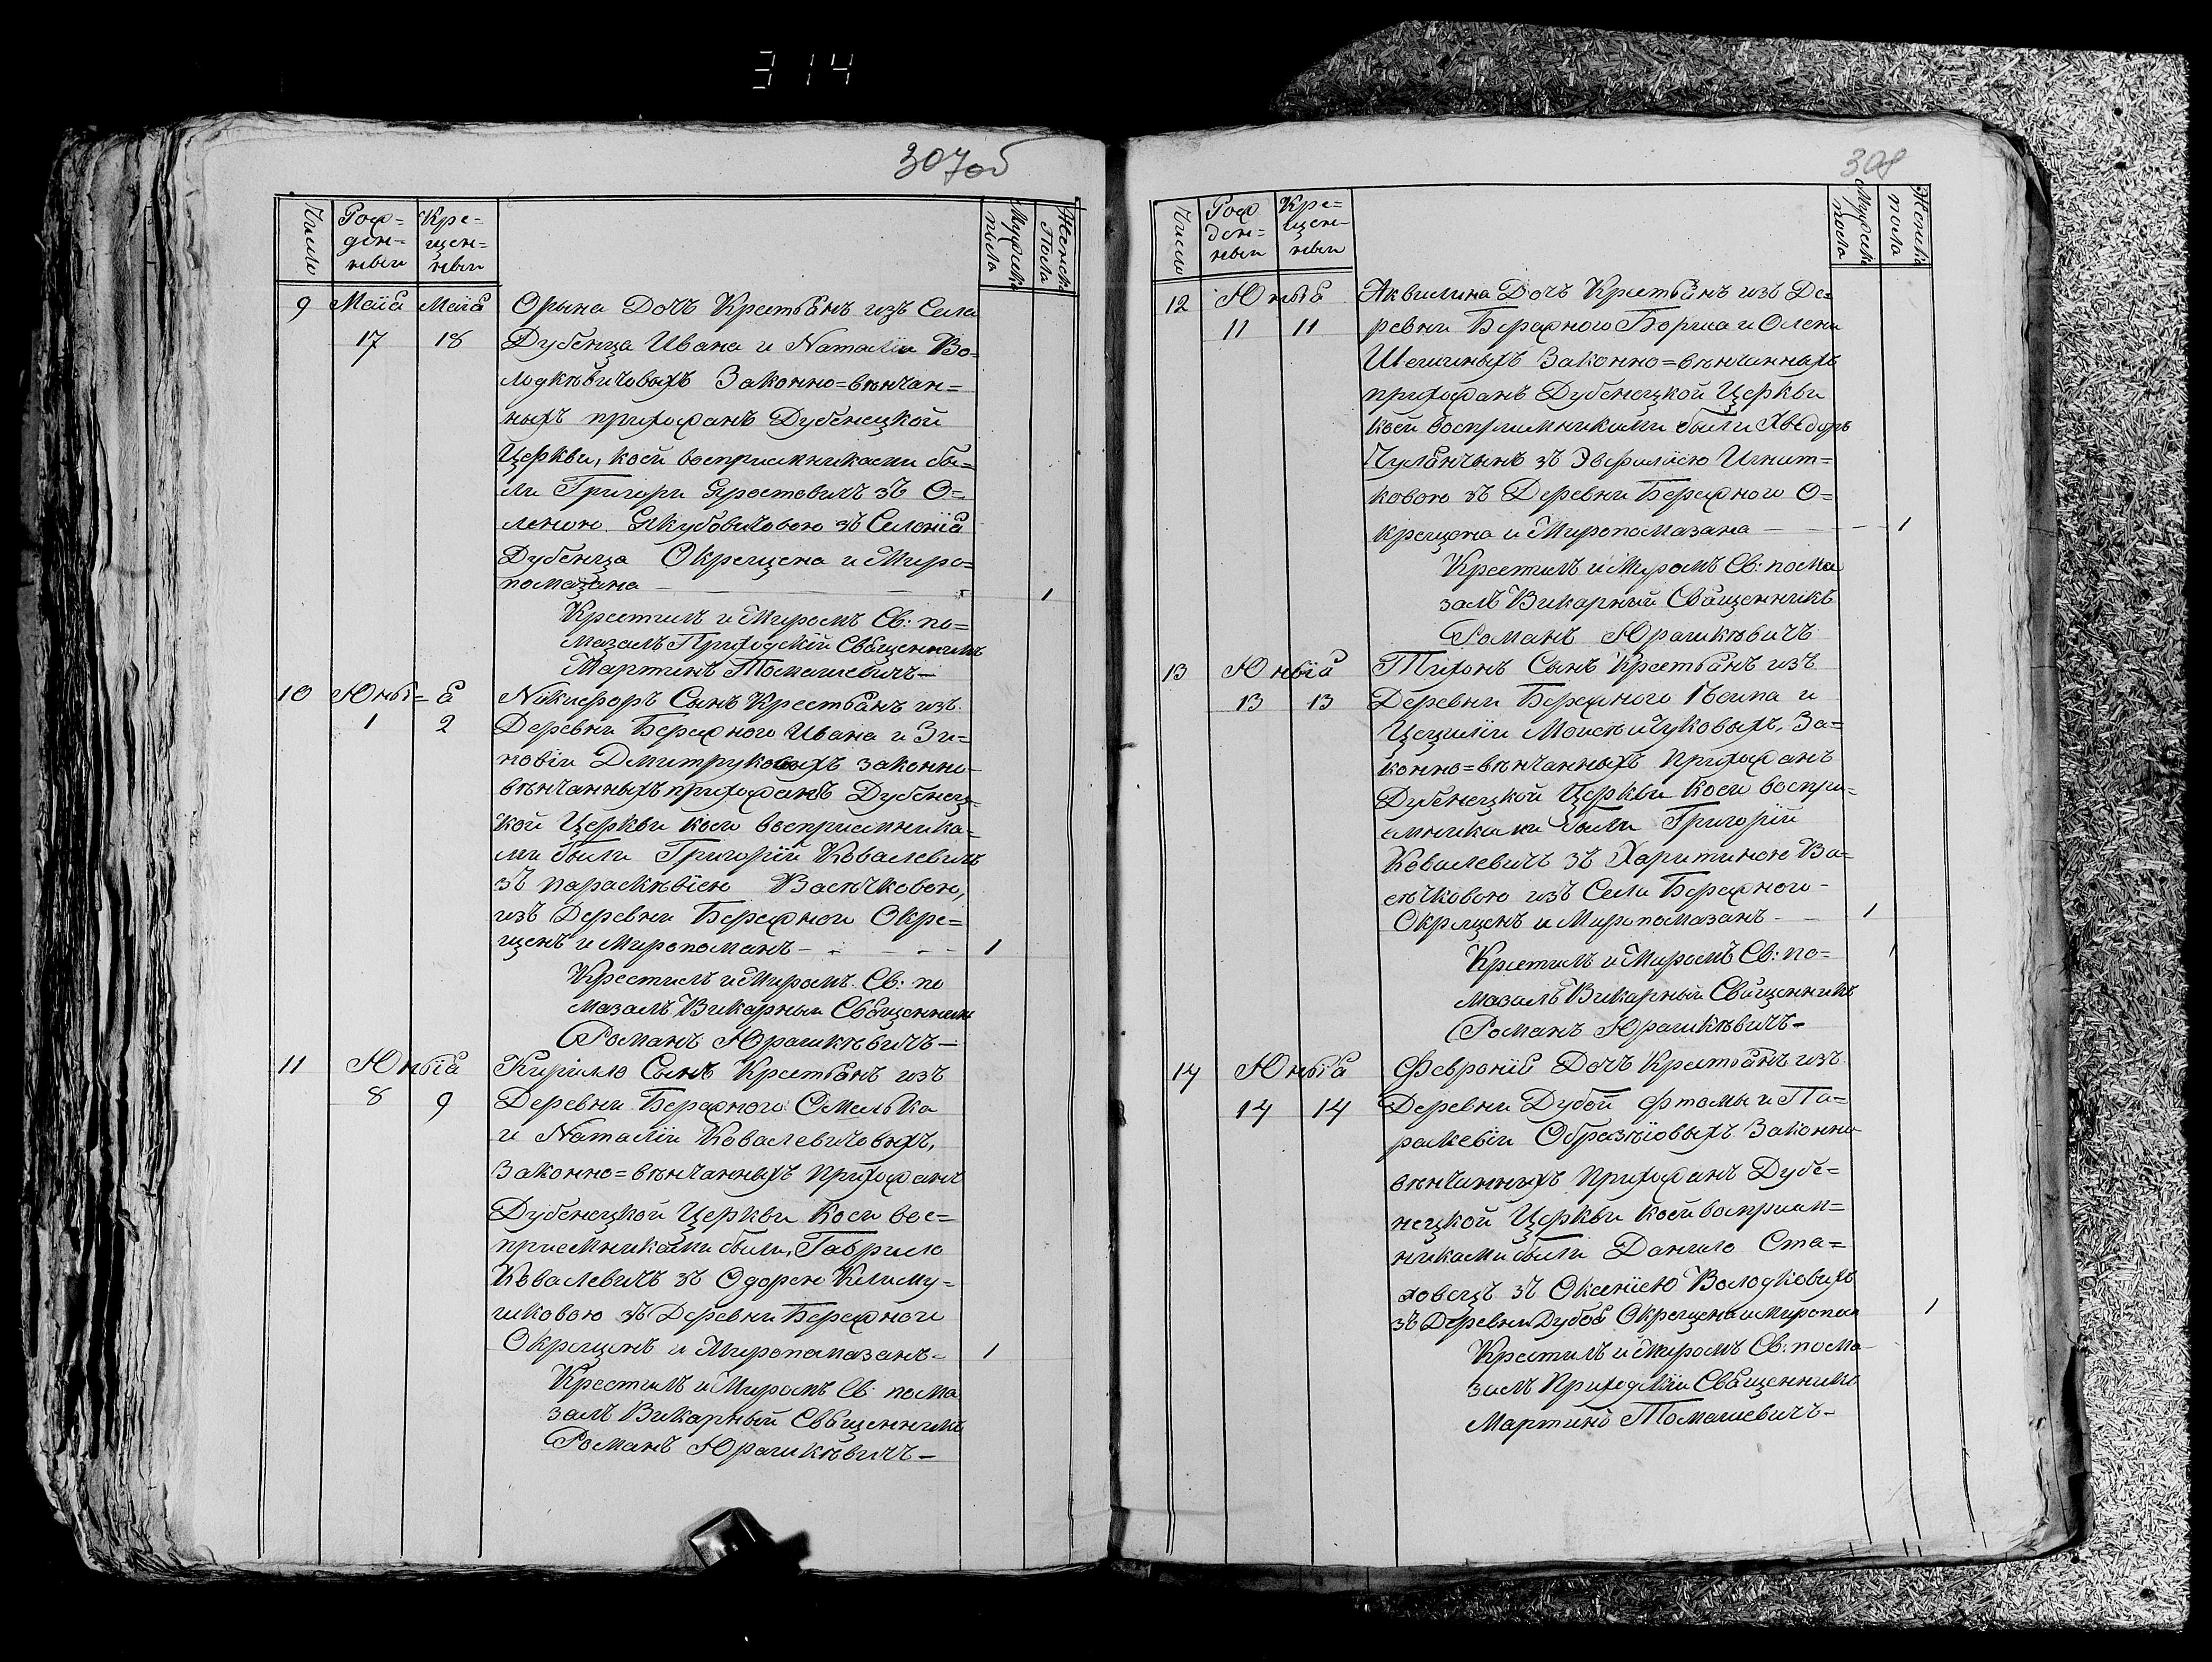 314
307об
Число
Рож=
ден=
ныи
Кре=
щен=
ныи
Мужеска
пола
Женска
Пола
9 Маїа Маїа Орына Дочъ Крестьянъ изъ Села
17 18 Дубенца Ивана и Nаталіи Во=
лодкѣвичовыхъ Законно=вѣнчан=
ныхъ прихожанъ Дубенецкой
Церкви, коей восприемниками бы=
ли Григори Яростовичъ зъ О=
леною Якубовичовою зъ Селенїа
Дубенца Окрещена и Миро=
помазана 1
Крестилъ и Миромъ Св: по=
мазалъ Приходскій Священникъ
Мартинъ Томашевичъ
10 Юныя
Nикифоръ Сынъ Крестьянъ изъ
1 2 Деревни Бережного Ивана и Зи=
новіи Дмитруковыхъ законно
вѣнчанныхъ прихожанъ Дубенец=
кой Церкви коей восприемника=
ми были Григорій Ковалевичъ
зъ параскѣвіею Васѣчковою,
изъ Деревни Бережной Окре=
щенъ и Миропоманъ 1
Крестилъ и Миромъ Св: по
мазалъ Викарныи Священникъ
Романъ Юрашкѣвичъ
11 Юныїа Кирилло Сынъ Крестьянъ изъ
8 9 Деревни Бережного Омелька
и Nаталіи Ковалевичовыхъ,
Законно=вѣнчанныхъ прихожанъ
Дубенецкой Церкви коей вос=
приемниками были, Гаврило
Ковалевичъ зъ Одорею Климу=
шковою зъ Деревни Бережноги
Окрещенъ и Миропомазанъ 1
Крестилъ и Миромъ Св: пома
залъ Викарный Священникъ
Романъ Юрашкѣвичъ
308
Число
Рож
ден=
ныи
Кре=
щен=
ныи
Мужеска
пола
Женска
пола
12 Юныя Аквилина Дочъ Крестьянъ изъ Де=
11 11 ревни Бережного Бориса и Олены
Законно=вѣнчанныхъ
прихожанъ Дубенецкой Церкви
коей восприимниками были Хведоръ
зъ Эвфиліею Игнит=
ковою зъ Деревни Бережного О=
крещена и Миропомазана 1
Крестилъ и Миромъ Св: пома
залъ Викарный Священникъ
Романъ Юрашкѣвичъ
13 Юныїа Тихонъ Сынъ Крестьянъ изъ
13 13 Деревни Бережного и
Цециліи Моисѣйчуковыхъ, За=
конно=вѣнчанныхъ прихожанъ
Дубенецкой Церкви коей воспри=
емниками были Григорій
Ковалевичъ зъ Харитиною Ва=
сѣчковою изъ Села Бережного
Окрещенъ и Миропомазанъ 1
Крестилъ и Миромъ Св: по=
мазалъ Викарный Священникъ
Романъ Юрашкѣвичъ
14 Юныїа Февронія Дочъ Крестьянъ изъ
14 14 Деревни Дубой Фтомы и Па=
раскевіи Законно
вѣнчанныхъ Прихожанъ Дубе=
нецкой Церкви коей восприем=
никами были Данило Ста=
ховецъ зъ Оксеніею Володковихъ
зъ Деревни Дубоя Окрещена и Миропом 1
Крестилъ и Миромъ Св: пома
залъ Приходскій Священникъ
Мартинъ Томашевичъ